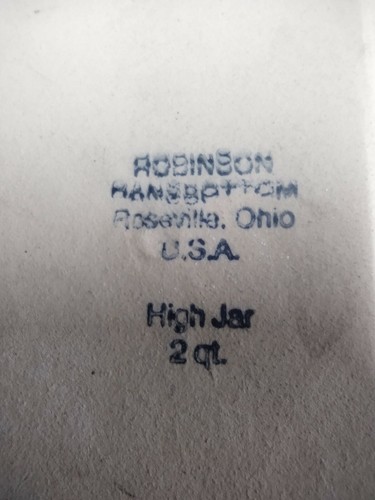 ROBINSON
RANSBOTTOM
Roseville, Ohio
U.S.A.
High Jar
2 qt.